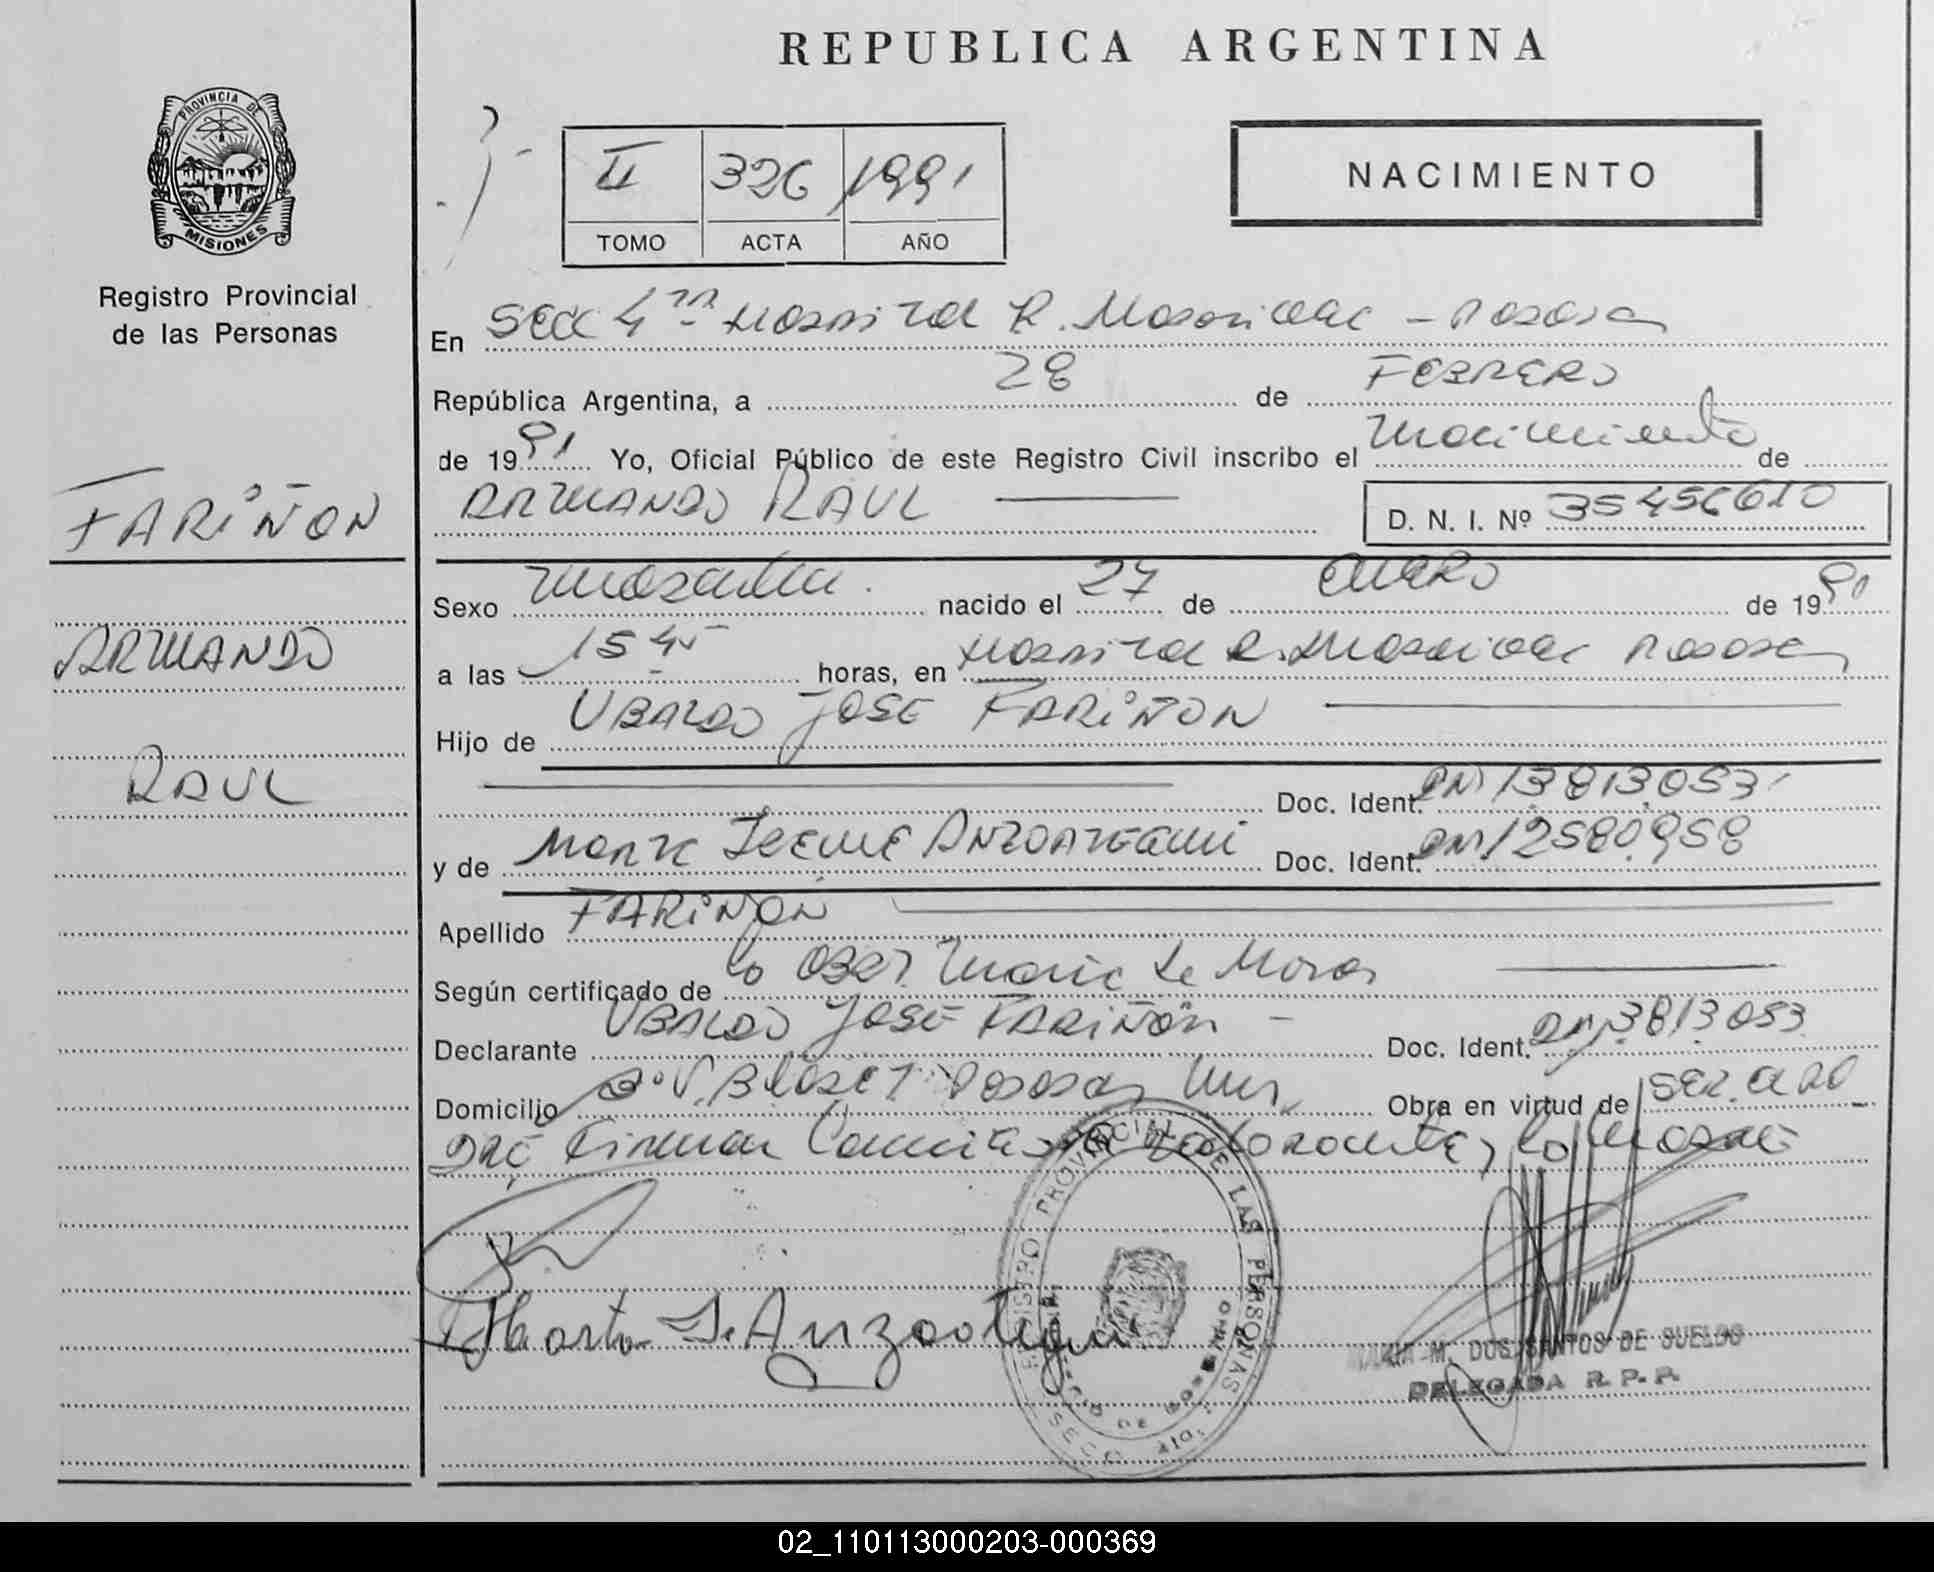 REPUBLICA ARGENTINA
PROVINCIA DE
MISIONES
Registro Provincial
de las Personas
II 326 1991
TOMO ACTA AÑO
NACIMIENTO
En Secc 4ta Hospital R. Madariaga - Posadas
República Argentina, a 28 de FEBRERO
de 1991 Yo, Oficial Público de este Registro Civil inscribo el nacimiento de
ARMANDO RAUL D. N. I. Nº 35456610
FARIÑON
ARMANDO
RAUL
Sexo masculino nacido el 27 de ENERO de 1991
a las 15 45 horas, en Hospital R. Madariaga Posadas
Hijo de UBALDO JOSE FARIÑON
Doc. Ident. DNI 13813053
y de Marta Irene Anzoategui Doc. Ident. DNI 12580958
Apellido FARIÑON
Según certificado de la Obst. Maria de
Declarante UBALDO JOSE FARIÑON Doc. Ident. DNI 13813053
Domicilio Posadas Mnes Obra en virtud de
Firman Declarante, la Madre
Marta I. Anzoategui
REGISTRO PROVINCIAL DE LAS PERSONAS
MARIA M. DOS SANTOS DE SUELDO
DELEGADA R. P. P.
02_110113000203-000369